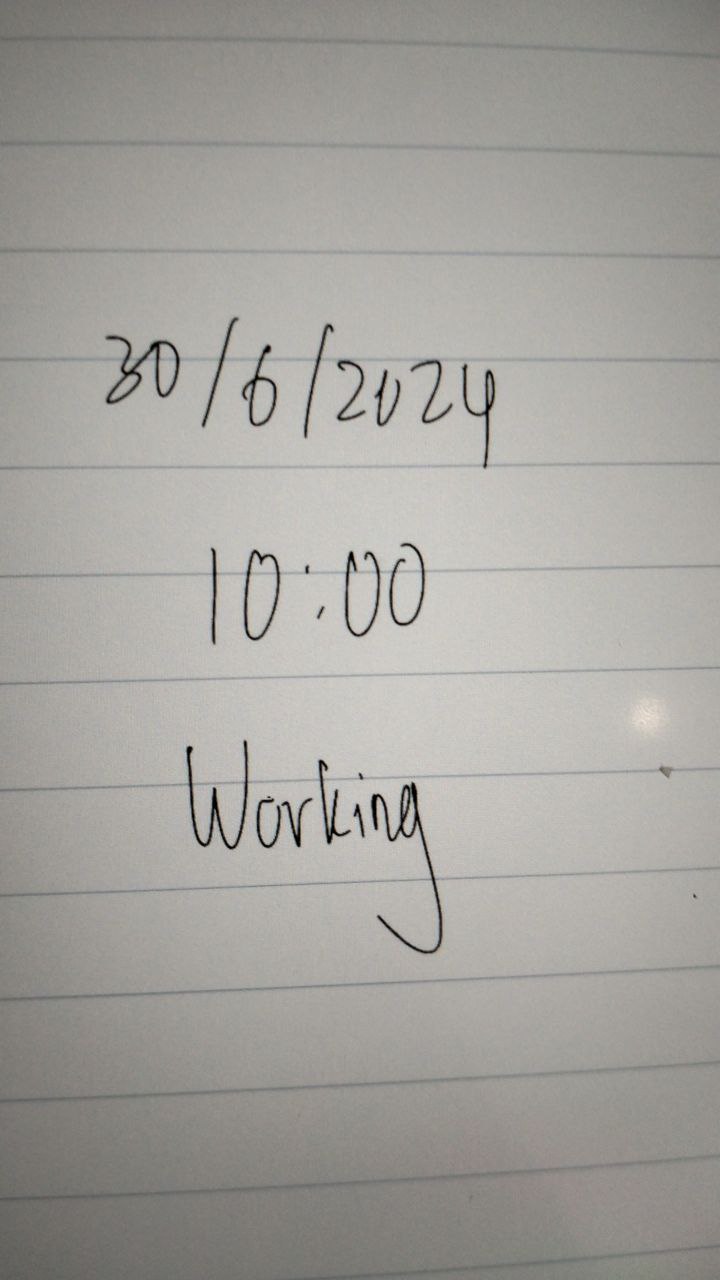 30/6/2024
10:00
Working